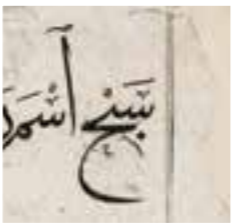 سبح اسم